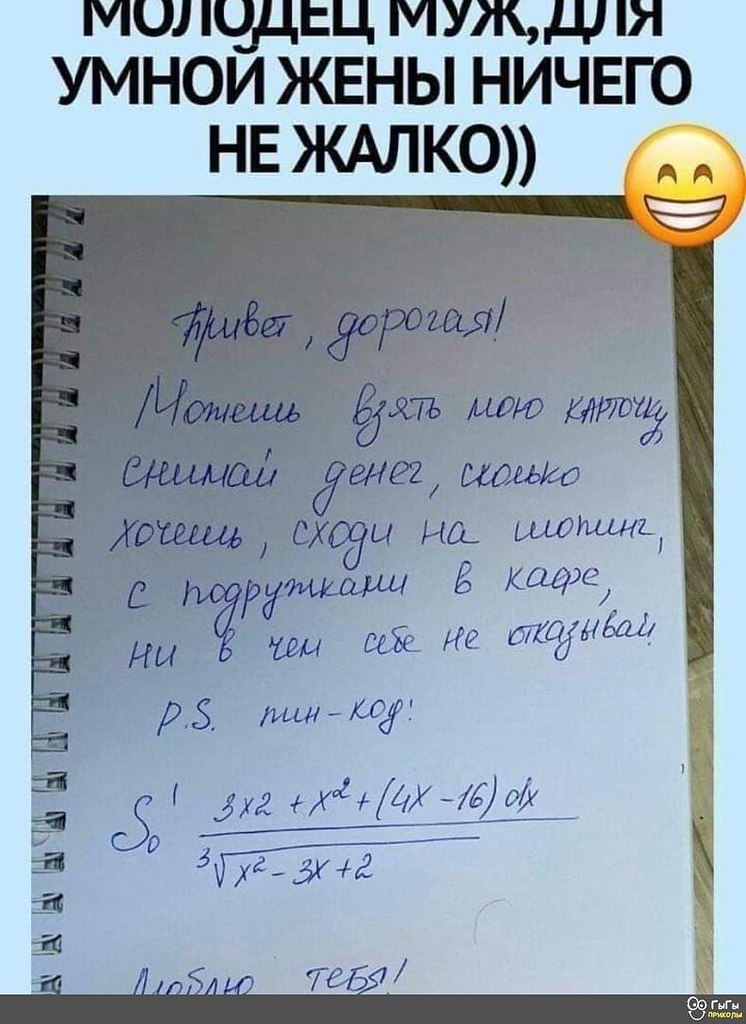 МОЛОДЕЦ МУЖ, ДЛЯ
УМНОЙ ЖЕНЫ НИЧЕГО
НЕ ЖАЛКО))
Привет, дорогая!
Можешь взять мою карточку
снимай денег, сколько
хочешь, сходи на шопинг,
с подружками в кафе,
ни в чем себе не отказывай
P.S. пин-код:
∫₀¹ 3x2 + x² + (4x - 16) dx
∛x² - 3x + 2
Люблю тебя!
ГыГы
приколы